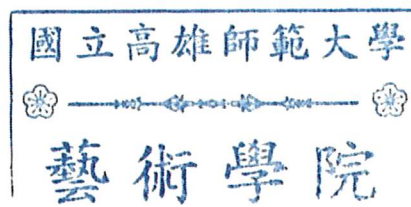 國立高雄師範大學
藝術學院